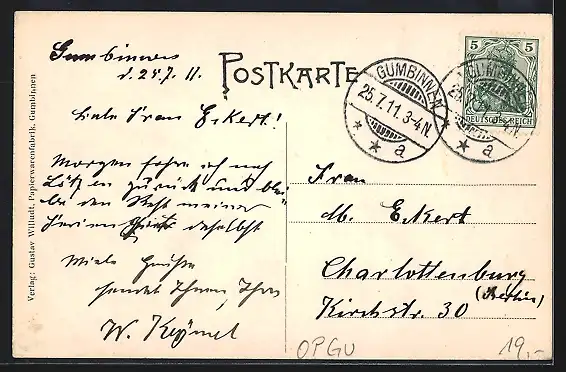 Gumbinnen
d. 25.7.11.
POSTKARTE
Liebe Frau Eckert!
Morgen fahre ich nach
Lötzen zurück und blei-
be den Rest meiner
Ferien daselbst
Viele Grüße
sendet Ihnen, Ihre
W. Keymel
Verlag: Gustav Willudt, Papierwarenfabrik, Gumbinnen
GUMBINNEN
25.7.11. 3-4N.
* * a
5 5
DEUTSCHES REICH
GUMBINNEN
a
Frau
M. Eckert
Charlottenburg
(Berlin)
Kirchstr. 30
OPGU
19,-